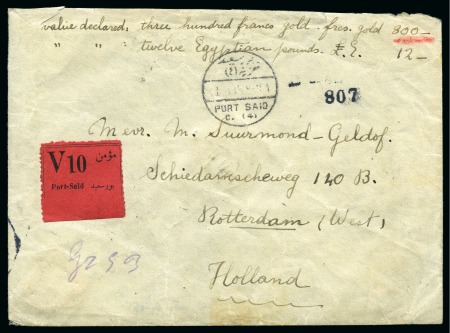 value declared: three hundred francs gold. frcs. gold 300—
" " : twelve Egyptian pounds. £.E. 12—
PORT SAID
C. (4)
807
Mevr. M. Suurmond-Geldof.
Schiedamscheweg 140 B.
Rotterdam (West)
Holland
V10 مؤمن
Port-Saïd بورسعيد